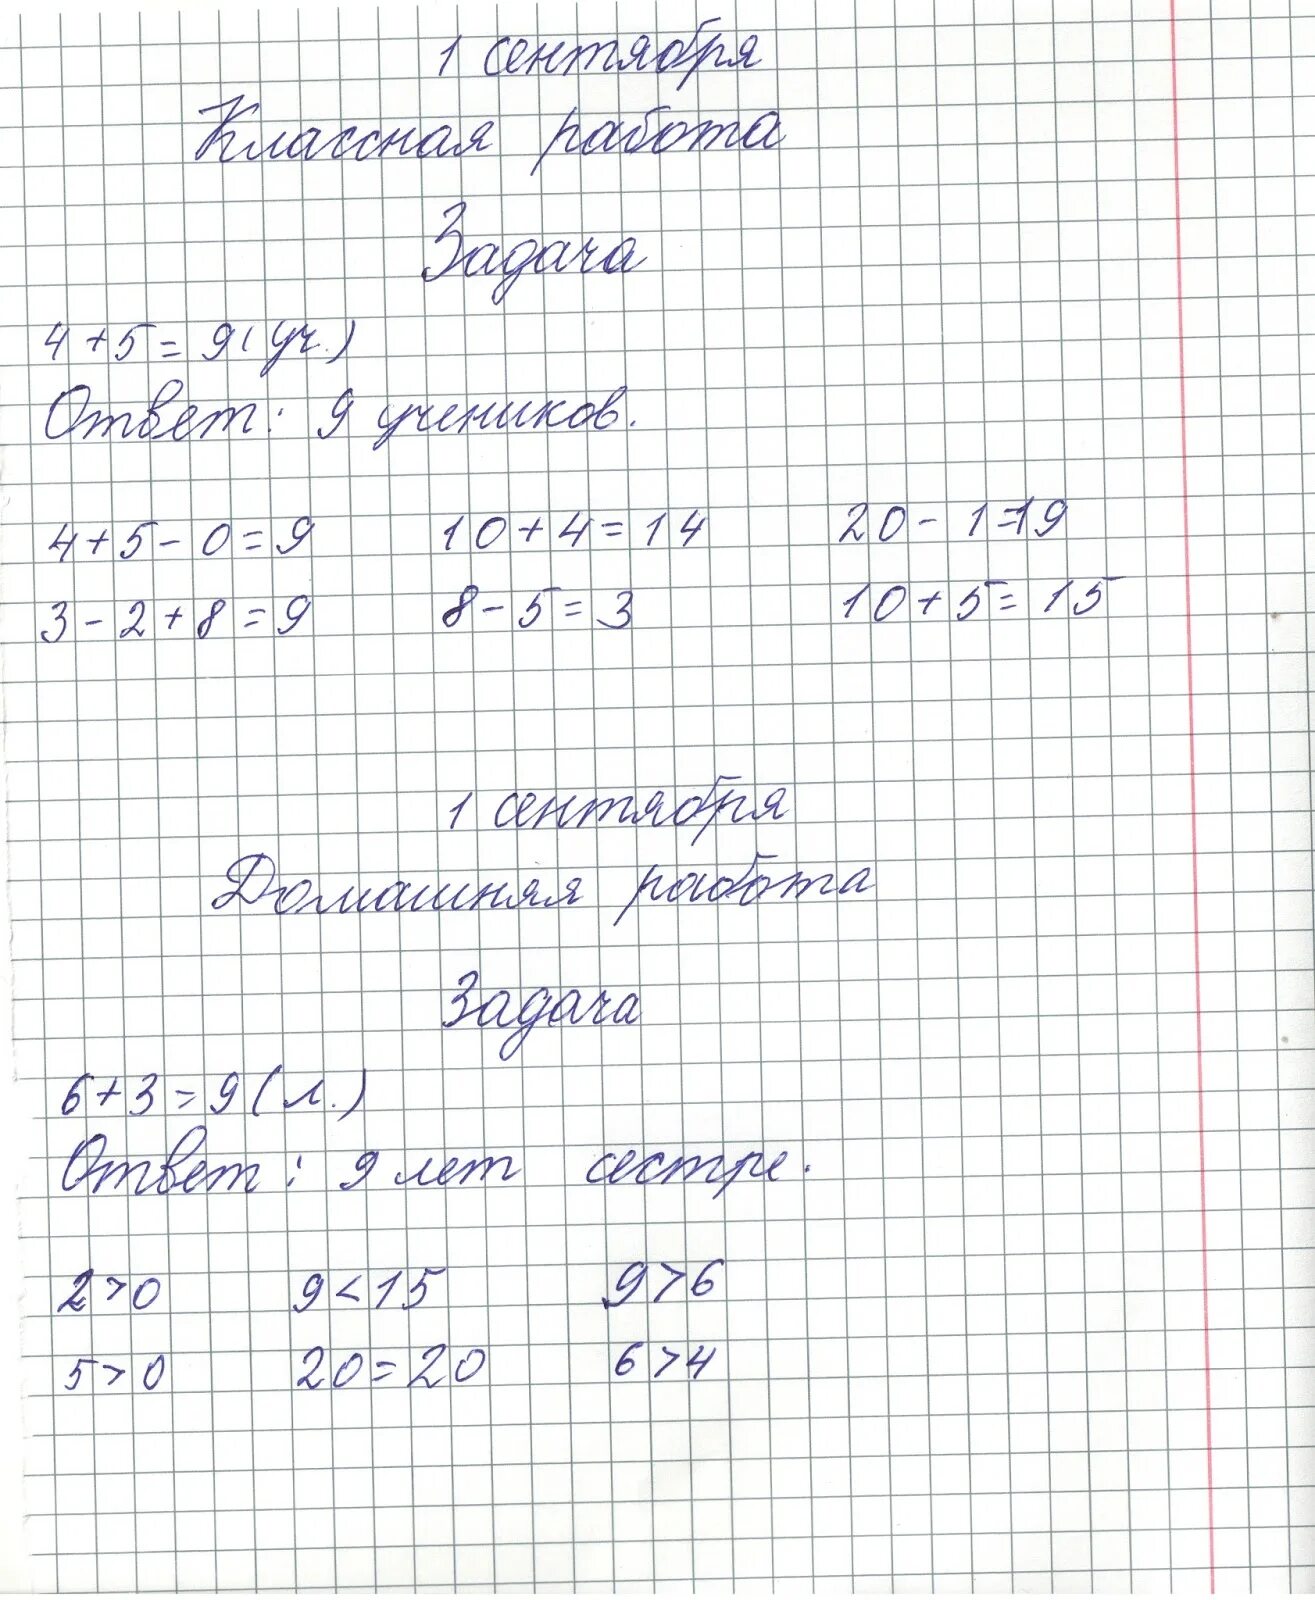 1 сентября
Классная работа
Задача
4 + 5 = 9 (уч.)
Ответ: 9 учеников.
4 + 5 - 0 = 9 10 + 4 = 14 20 - 1 = 19
3 - 2 + 8 = 9 8 - 5 = 3 10 + 5 = 15
1 сентября
Домашняя работа
Задача
6 + 3 = 9 (л.)
Ответ: 9 лет сестре.
2 > 0 9 < 15 9 > 6
5 > 0 20 = 20 6 > 4